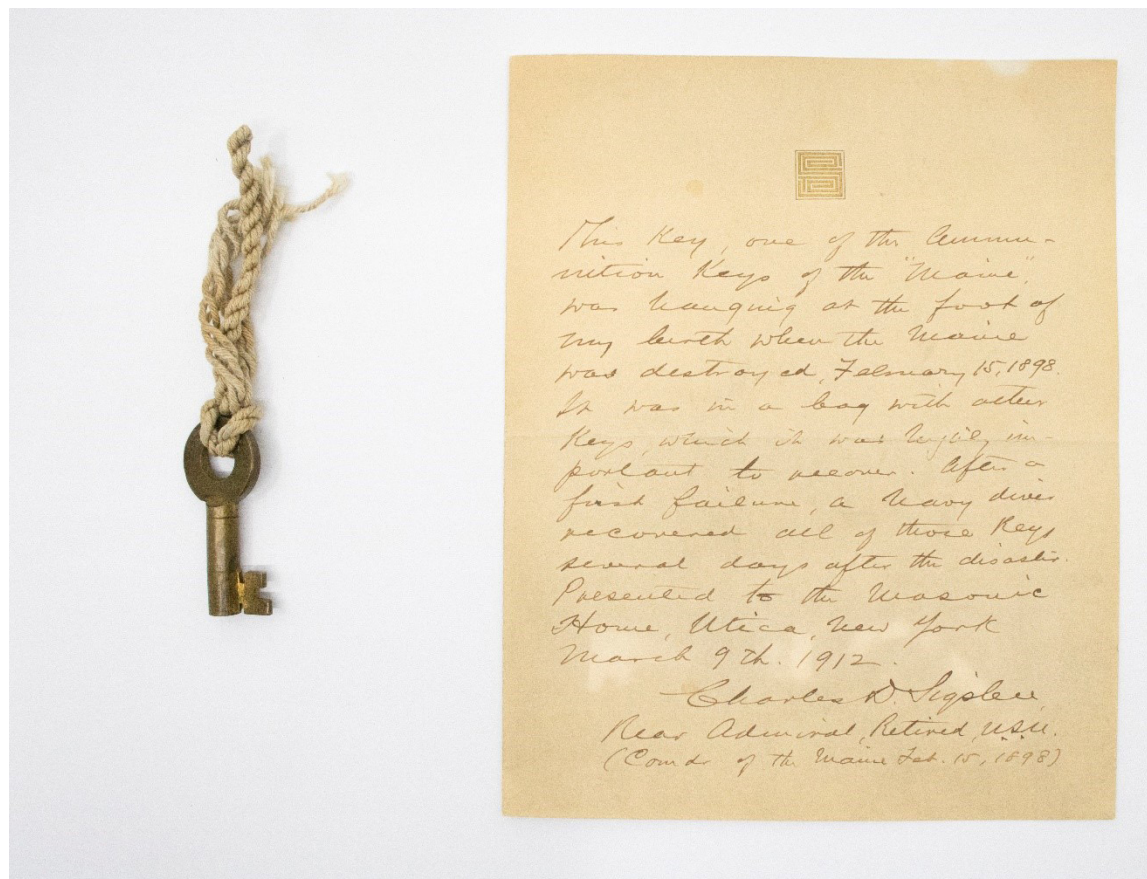 This Key, one of the Ammu-
nition Keys of the "Maine",
was hanging at the foot of
my berth when the Maine
was destroyed, February 15, 1898.
It was in a bag with other
Keys, which it was highly im-
portant to recover. After a
first failure, a Navy diver
recovered all of those Keys
several days after the disaster.
Presented to the Masonic
Home, Utica, New York
March 9th. 1912.
Charles D. Sigsbee,
Rear Admiral, Retired, U.S.N.
(Comdr of the Maine Feb. 15, 1898)